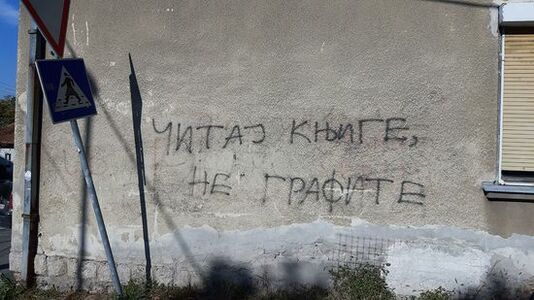 ЧИТАЈ КЊИГЕ,
НЕ ГРАФИТЕ